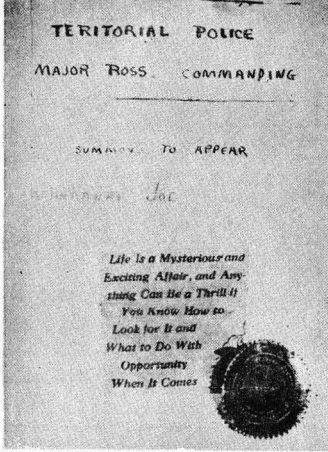 TERITORIAL POLICE
MAJOR ROSS COMMANDING
SUMMONS TO APPEAR
JOE
Life Is a Mysterious and
Exciting Affair, and Any-
thing Can Be a Thrill if
You Know How to
Look for It and
What to Do With
Opportunity
When It Comes